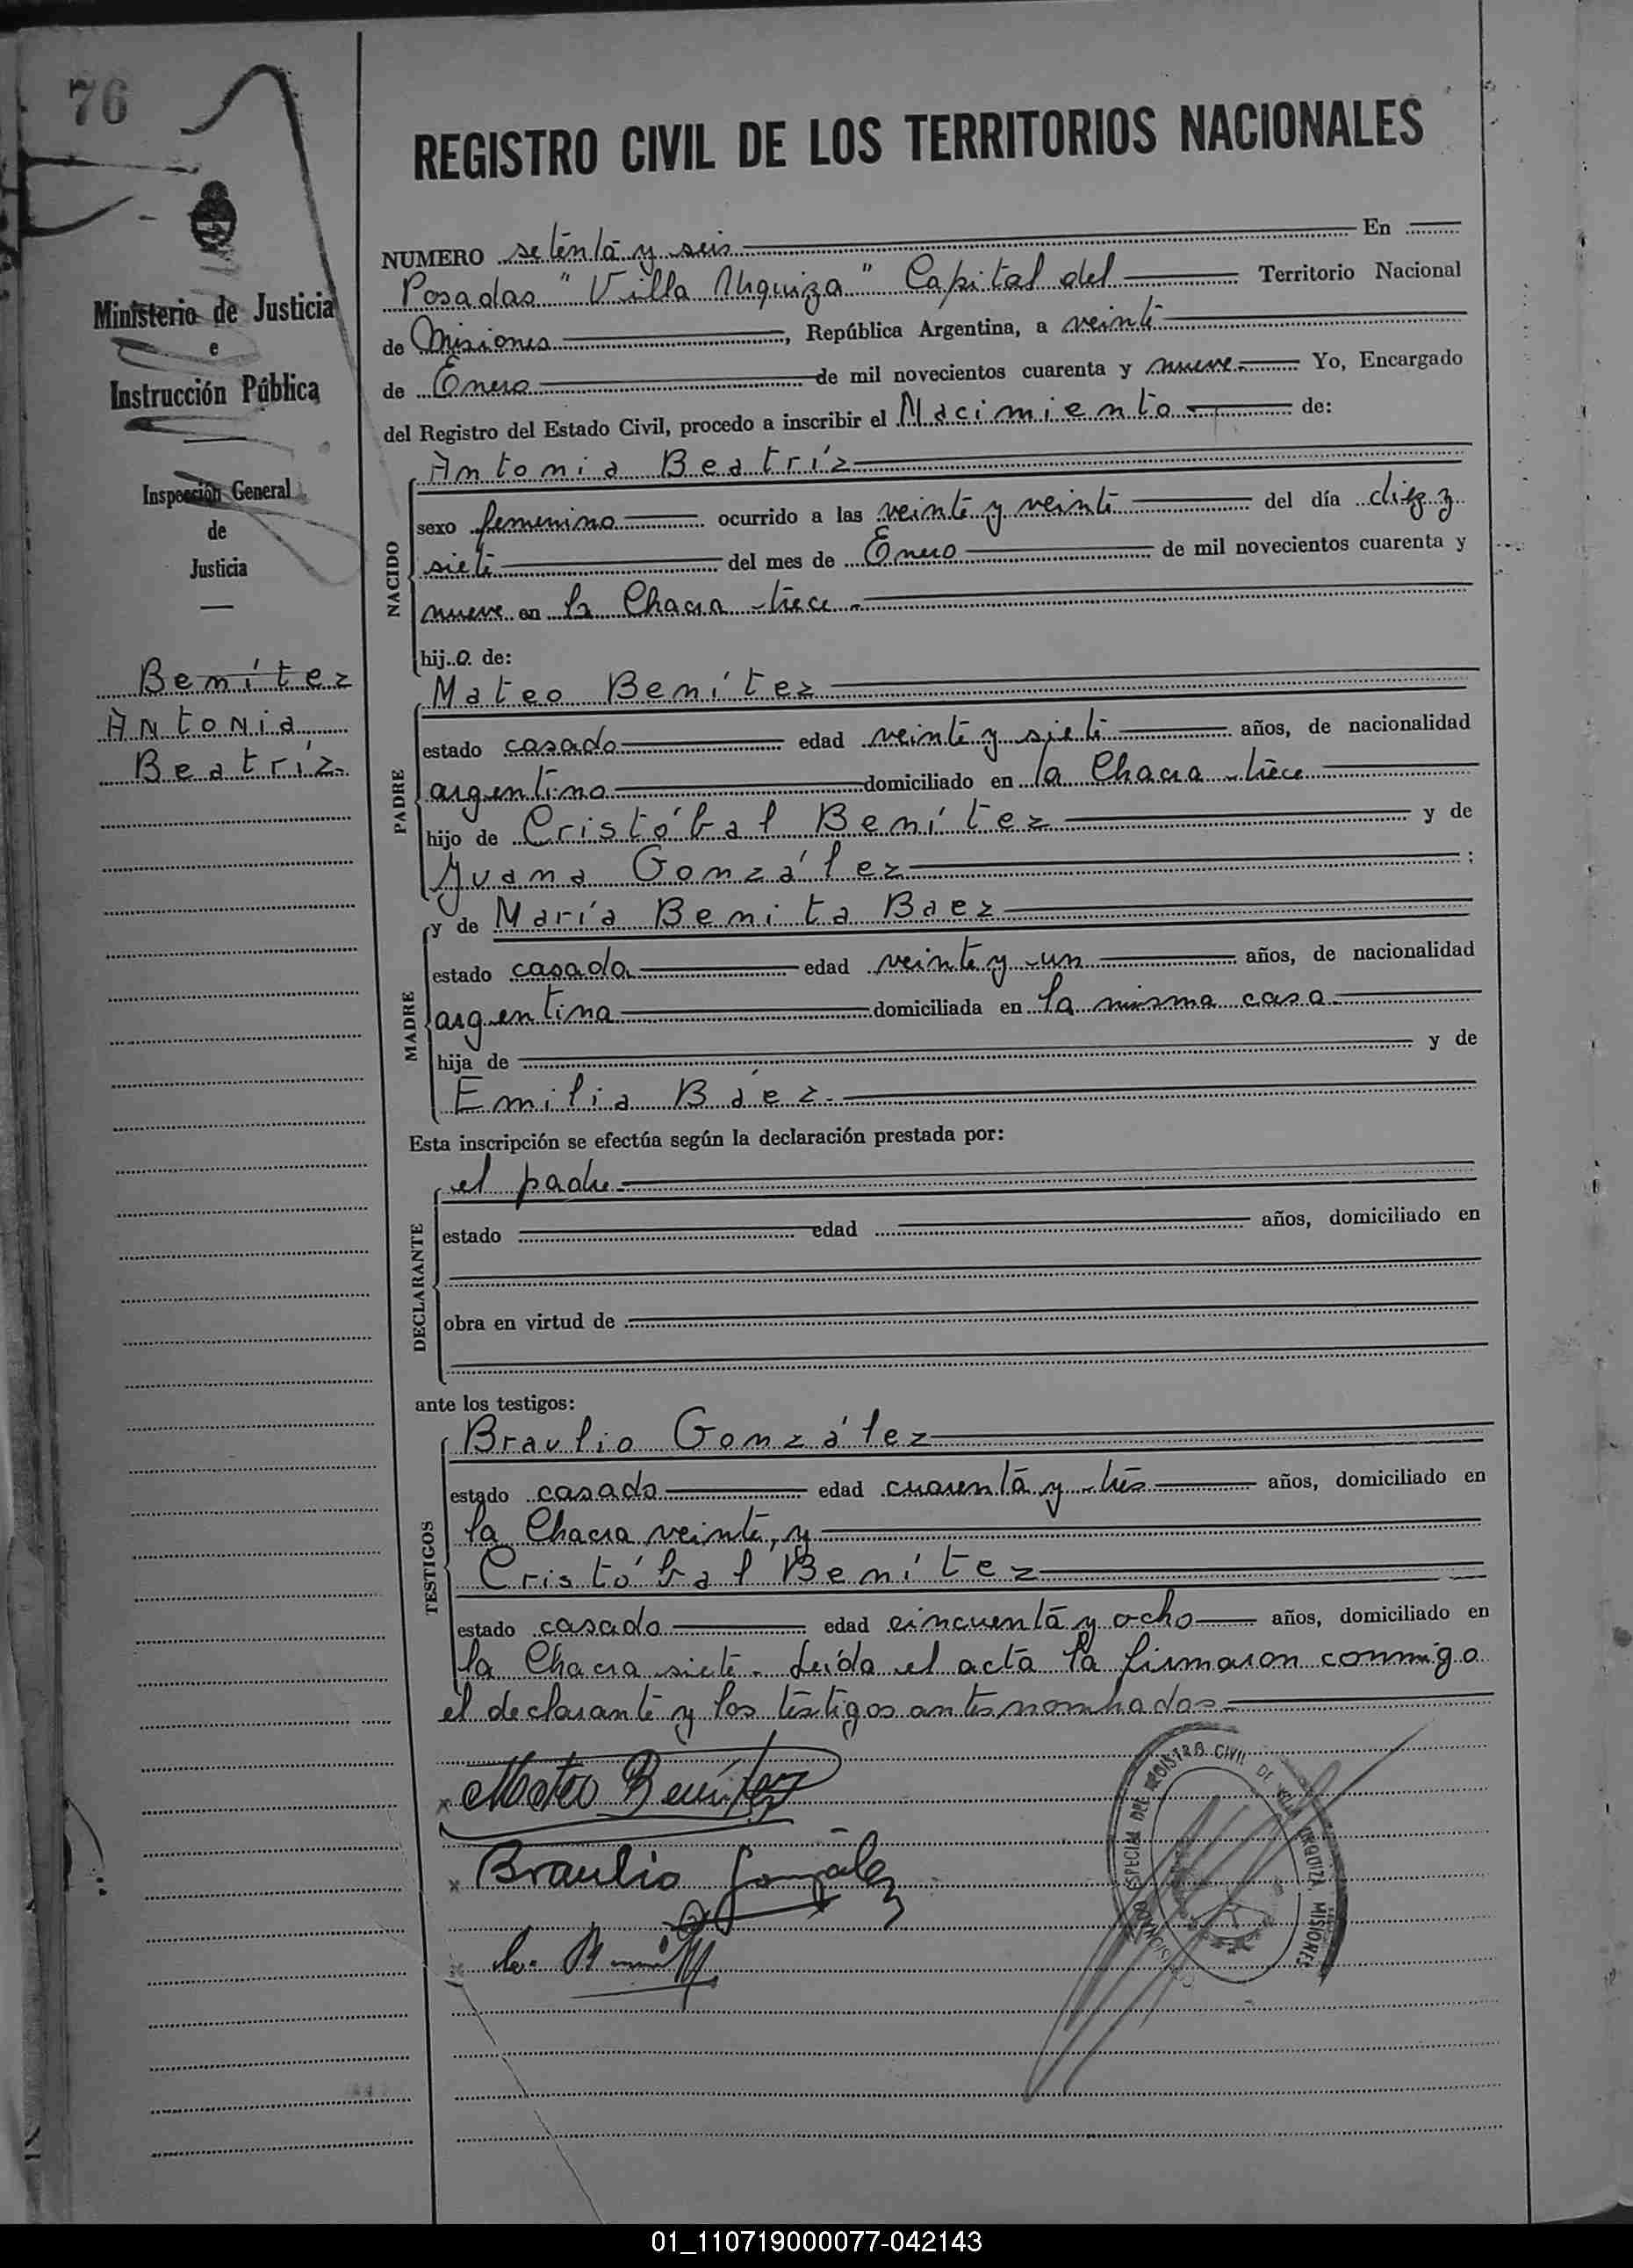 76
Ministerio de Justicia
e
Instrucción Pública
Inspección General
de
Justicia
Benítez
Antonia
Beatríz.
REGISTRO CIVIL DE LOS TERRITORIOS NACIONALES
NUMERO setenta y seis En
Posadas "Villa Urquiza" Capital del Territorio Nacional
de Misiones, República Argentina, a veinte
de Enero de mil novecientos cuarenta y nueve Yo, Encargado
del Registro del Estado Civil, procedo a inscribir el Nacimiento de:
Antonia Beatríz
sexo femenino ocurrido a las veinte y veinte del día diez y
siete del mes de Enero de mil novecientos cuarenta y
nueve en la Chacra trece.
NACIDO
hij a de:
Mateo Benítez
estado casado edad veinte y siete años, de nacionalidad
argentino domiciliado en la Chacra trece
PADRE
hijo de Cristóbal Benítez y de
Juana González ;
y de María Benita Baez
estado casada edad veinte y un años, de nacionalidad
argentina domiciliada en la misma casa
MADRE
hija de y de
Emilia Báez.
Esta inscripción se efectúa según la declaración prestada por:
el padre.
estado edad años, domiciliado en
DECLARANTE
obra en virtud de
ante los testigos:
Braulio González
estado casado edad cuarenta y tres años, domiciliado en
la Chacra veinte, y
TESTIGOS
Cristóbal Benítez
estado casado edad cincuenta y ocho años, domiciliado en
la Chacra siete. Leída el acta la firmaron conmigo
el declarante y los testigos antes nombrados.
x Mateo Benítez
x Braulio González
x
ESPECIAL DEL REGISTRO CIVIL DE VILLA URQUIZA MISIONES
01_110719000077-042143